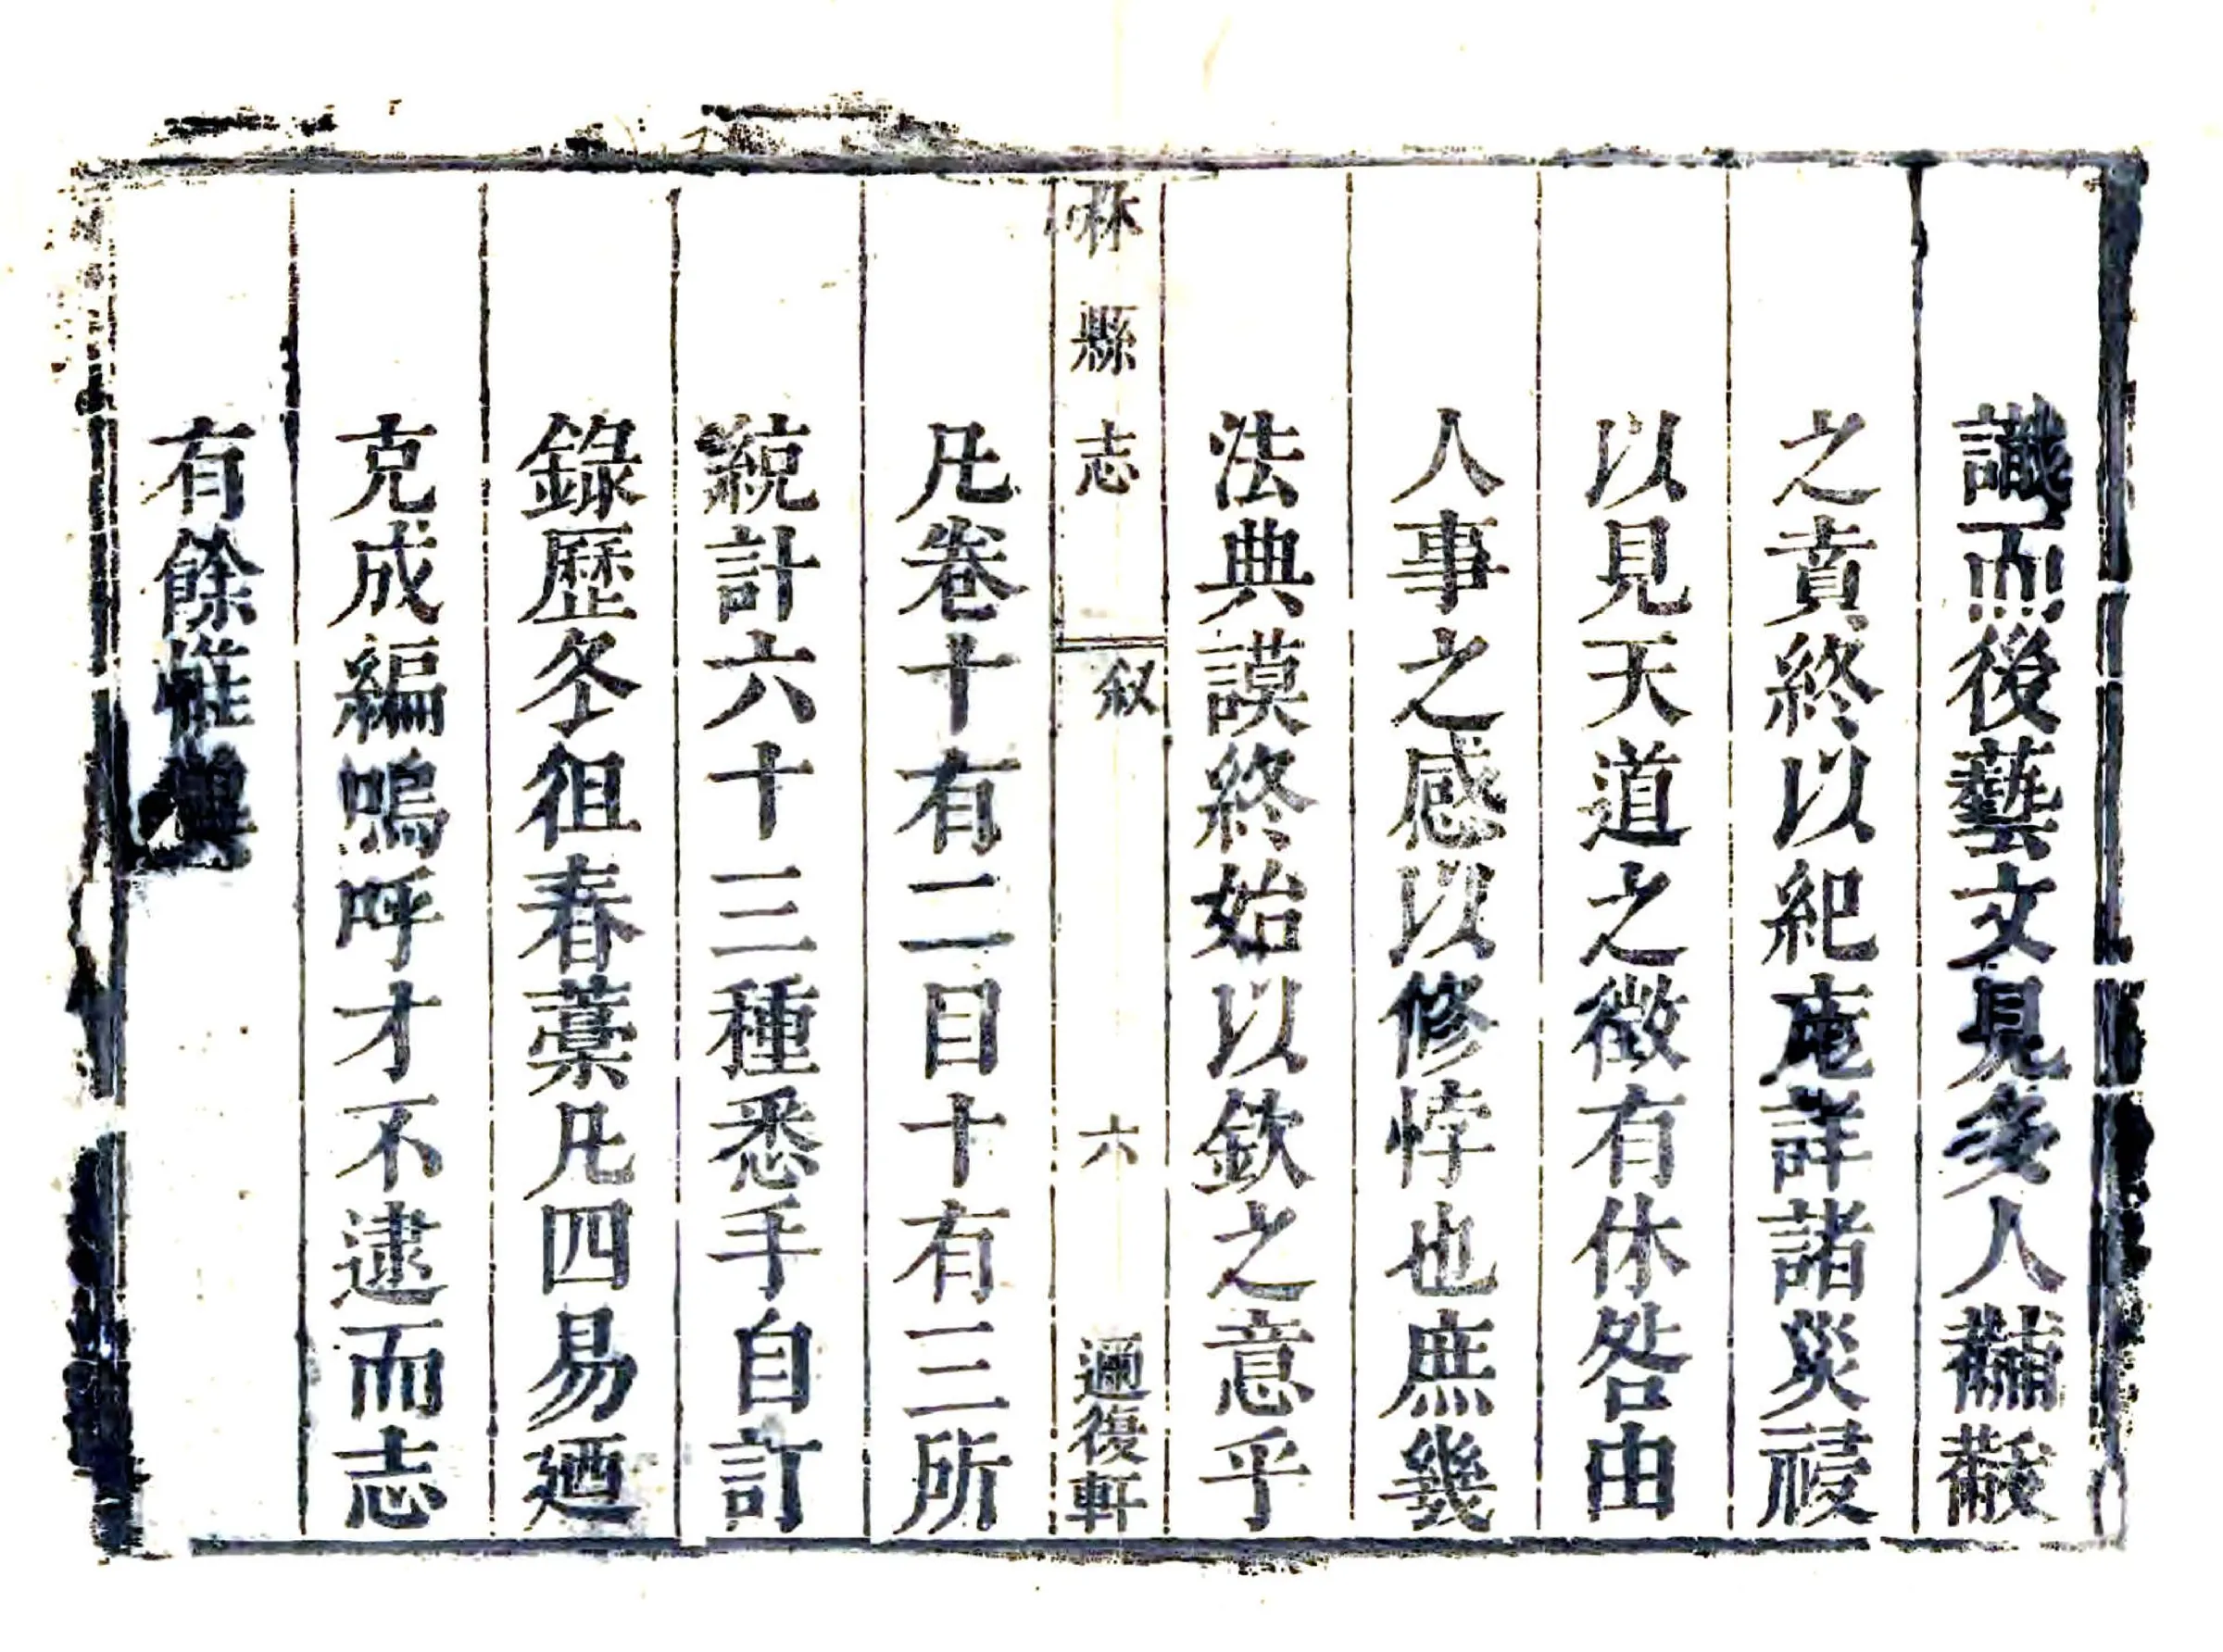 識而後藝文見多人黼黻
之賁終以紀庵詳諸災祲
以見天道之徵有休咎由
人事之感以修悖也庶幾
法典謨終始以欽之意乎
林縣志 叙 六 邇復軒
凡卷十有二目十有三所
統計六十三種悉手自訂
錄歷冬徂春藁凡四易廼
克成編嗚呼才不逮而志
有餘惟